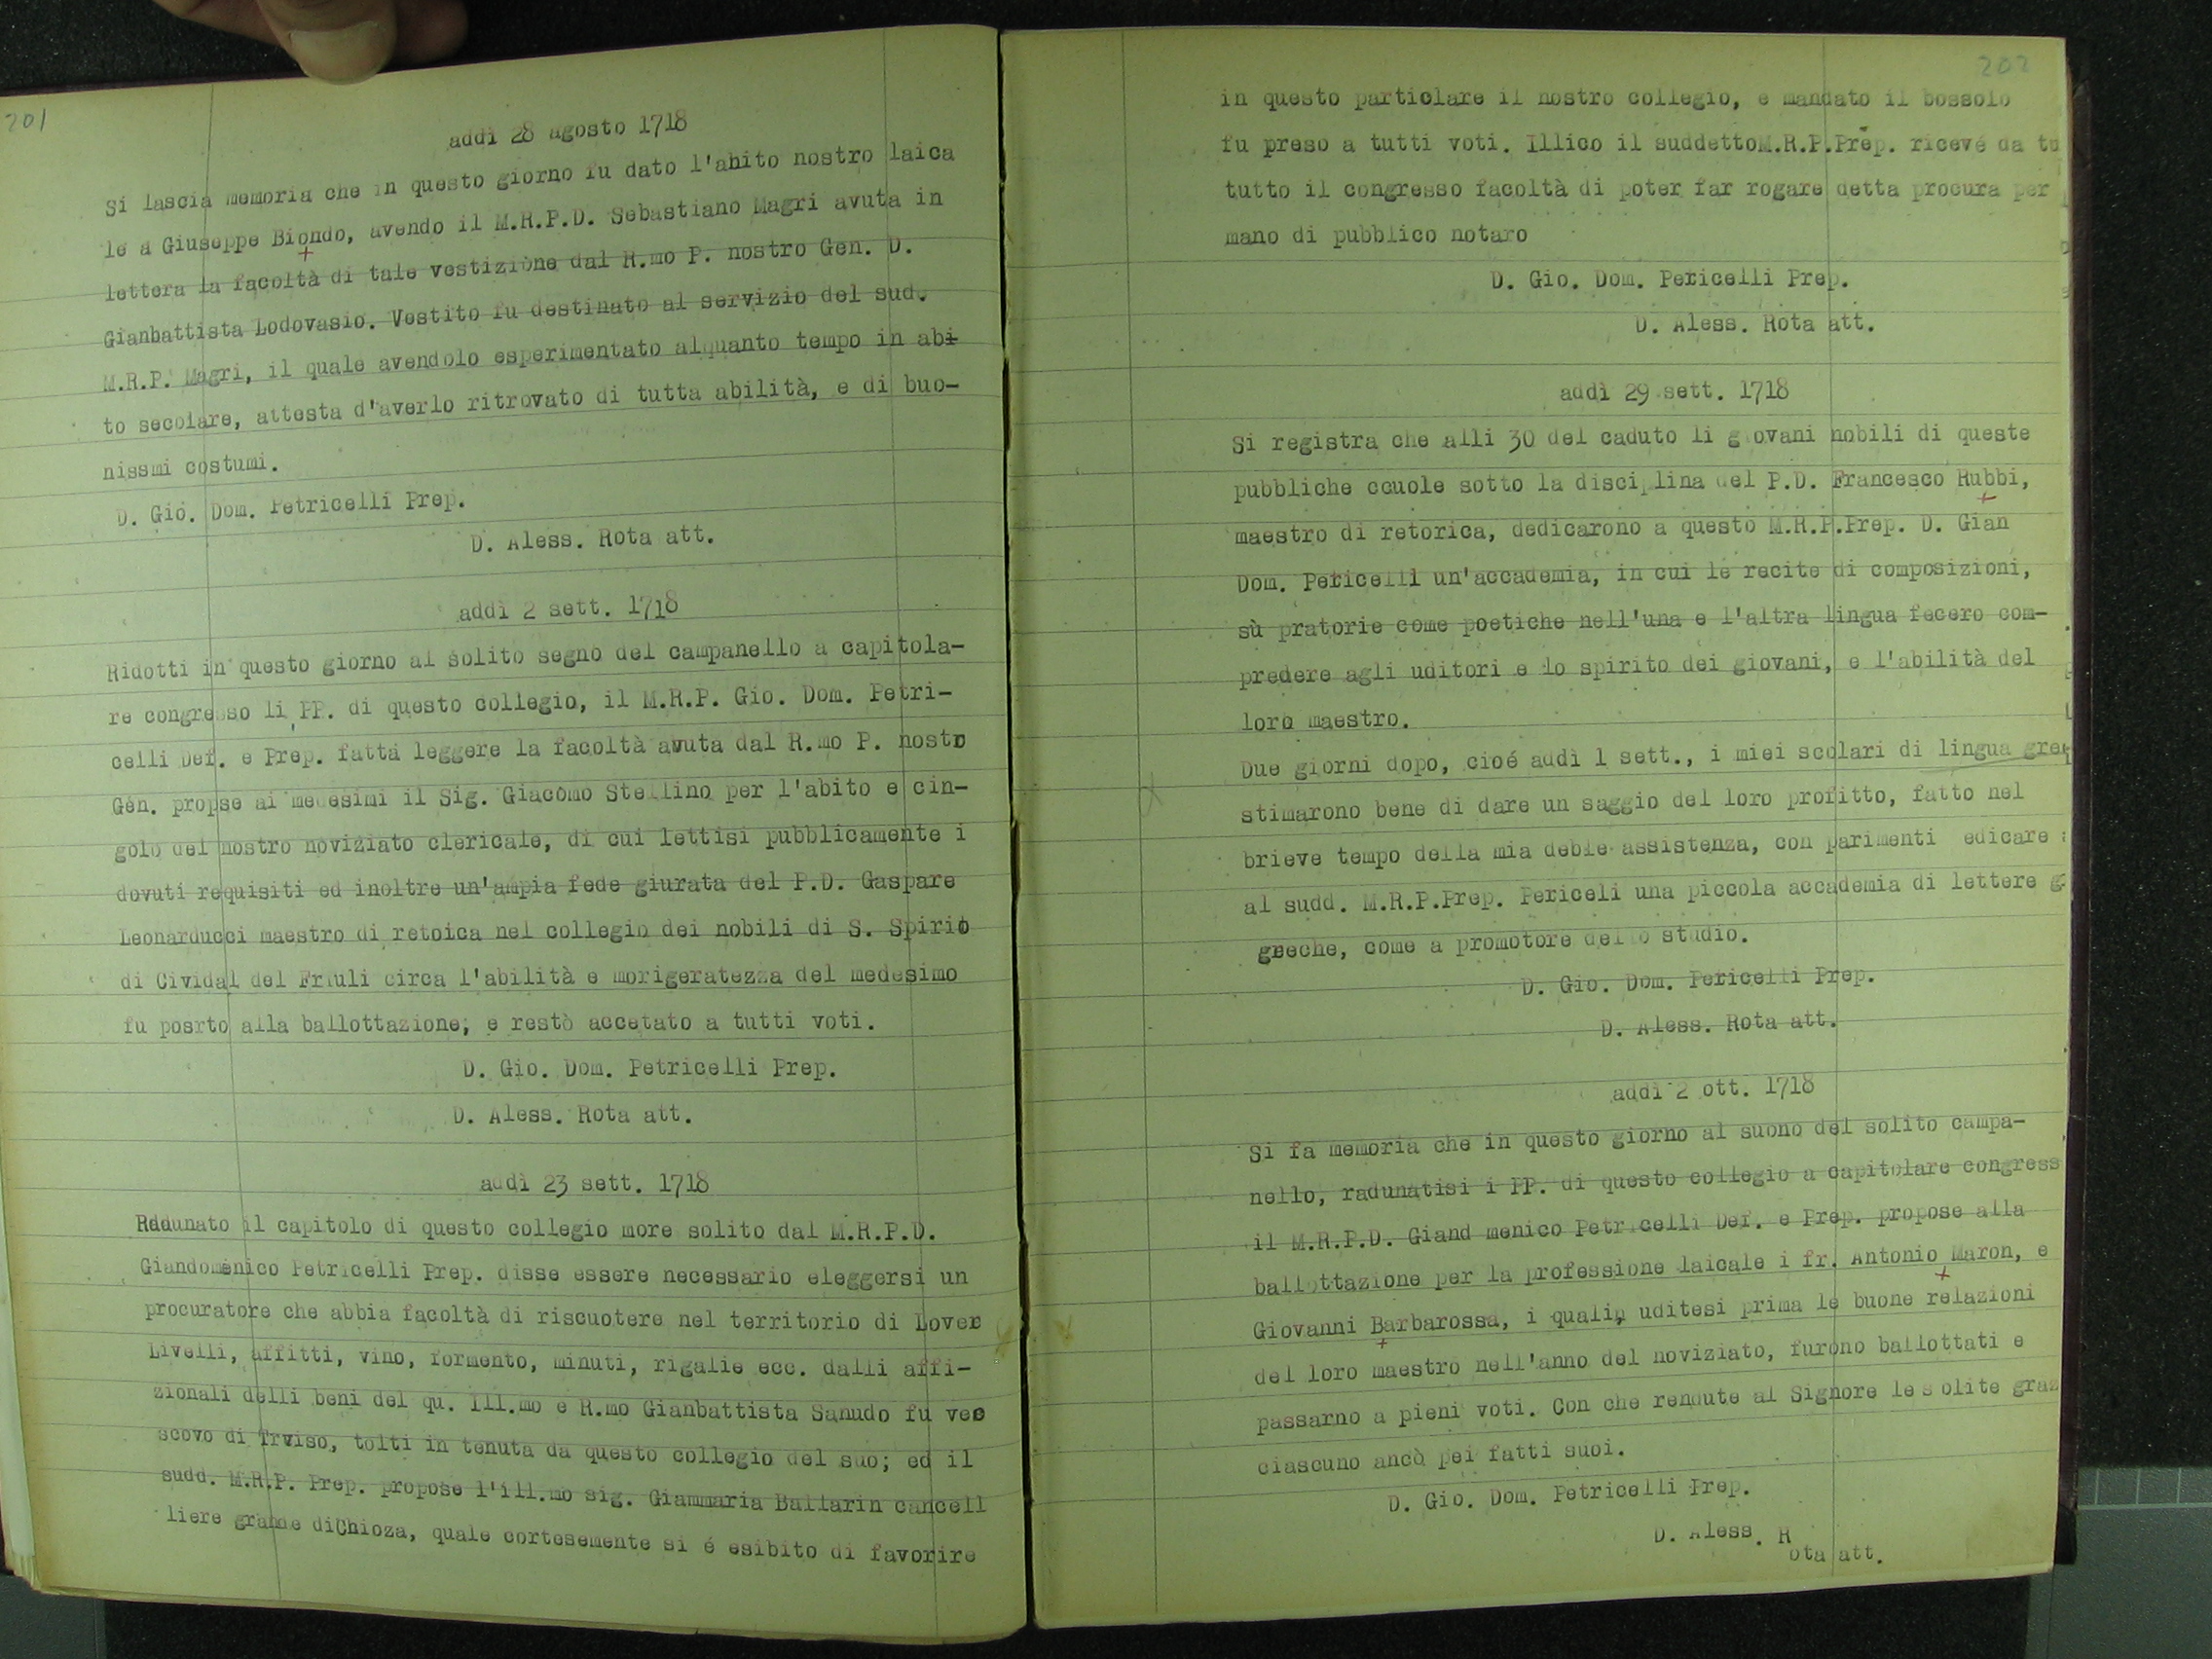 201
addì 28 agosto 1718
Si lascia memoria che in questo giorno fu dato l'abito nostro laica
le a Giuseppe Biondo, avendo il M.R.P.D. Sebastiano Magri avuta in
lettera la facoltà di tale vestizione dal R.mo P. nostro Gen. D.
Gianbattista Lodovasio. Vestito fu destinato al servizio del sud.
M.R.P. Magri, il quale avendolo esperimentato alquanto tempo in abi
to secolare, attesta d'averlo ritrovato di tutta abilità, e di buo-
nissmi costumi.
D. Gio. Dom. Petricelli Prep.
D. Aless. Rota att.
addì 2 sett. 1718
Ridotti in questo giorno al solito segno del campanello a capitola-
re congresso li PP. di questo collegio, il M.R.P. Gio. Dom. Petri-
celli Def. e Prep. fatta leggere la facoltà avuta dal R.mo P. nostro
Gen. propse ai medesimi il Sig. Giacomo Stellino per l'abito e cin-
golo del nostro noviziato clericale, di cui lettisi pubblicamente i
dovuti requisiti ed inoltre un'ampia fede giurata del P.D. Gaspare
Leonarducci maestro di retoica nel collegio dei nobili di S. Spirio
di Cividal del Friuli circa l'abilità e morigeratezza del medesimo
fu posrto alla ballottazione; e restò accetato a tutti voti.
D. Gio. Dom. Petricelli Prep.
D. Aless. Rota att.
addì 23 sett. 1718
Radunato il capitolo di questo collegio more solito dal M.R.P.D.
Giandomenico Petricelli Prep. disse essere necessario eleggersi un
procuratore che abbia facoltà di riscuotere nel territorio di Lover
Livelli, affitti, vino, formento, minuti, rigalie ecc. dalli affi-
zionali delli beni del qu. Ill.mo e R.mo Gianbattista Sanudo fu ves
scovo di Trviso, tolti in tenuta da questo collegio del suo; ed il
sudd. M.R.P. Prep. propose l'ill.mo sig. Giammaria Ballarin cancell
liere grande diChioza, quale cortesemente si é esibito di favorire
202
in questo particlare il nostro collegio, e mandato il bossolo
fu preso a tutti voti. Illico il suddettoM.R.P.Prep. ricevé da tu
tutto il congresso facoltà di poter far rogare detta procura per
mano di pubblico notaro
D. Gio. Dom. Petricelli Prep.
D. Aless. Rota att.
addì 29 sett. 1718
Si registra che alli 30 del caduto li giovani nobili di queste
pubbliche ccuole sotto la disciplina del P.D. Francesco Rubbi,
maestro di retorica, dedicarono a questo M.R.P.Prep. D. Gian
Dom. Petricelli un'accademia, in cui le recite di composizioni,
sù pratorie come poetiche nell'una e l'altra lingua fecero com-
predere agli uditori e lo spirito dei giovani, e l'abilità del
loro maestro.
Due giorni dopo, cioé addì 1 sett., i miei scolari di lingua grec
stimarono bene di dare un saggio del loro profitto, fatto nel
brieve tempo della mia deble assistenza, con parimenti edicare
al sudd. M.R.P.Prep. Periceli una piccola accademia di lettere g
greche, come a promotore dello studio.
D. Gio. Dom. Petricelli Prep.
D. Aless. Rota att.
addì 2 ott. 1718
Si fa memoria che in questo giorno al suono del solito campa-
nello, radunatisi i PP. di questo collegio a capitolare congress
il M.R.P.D. Giand menico Petricelli Def. e Prep. propose alla
ballottazione per la professione laicale i fr. Antonio Maron, e
Giovanni Barbarossa, i quali, uditesi prima le buone relazioni
del loro maestro nell'anno del noviziato, furono ballottati e
passarno a pieni voti. Con che rendute al Signore le s olite graz
ciascuno ancò pei fatti suoi.
D. Gio. Dom. Petricelli Prep.
D. Aless. R
ota att.